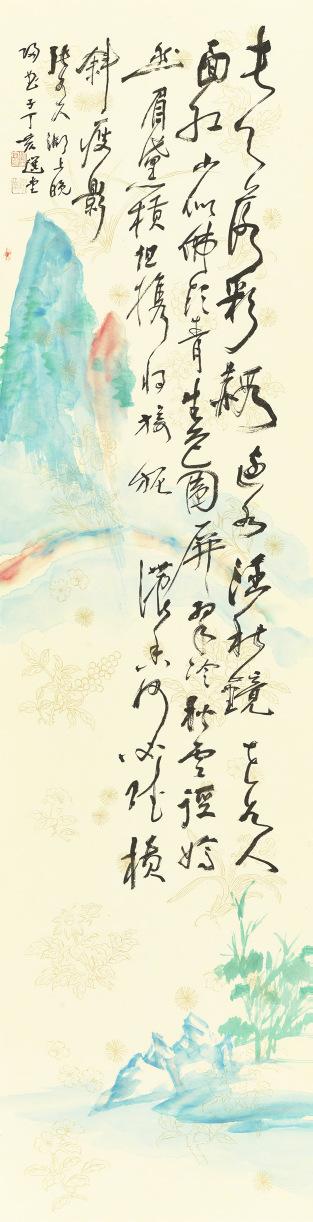 長天落彩霞遠水涵秋鏡花如人
面紅山似佛頭青生色圍屏翠冷松雲徑嫣
然眉黛橫但攜將旖旎濃香何必賦橫
斜瘦影
張可久湖上晚
歸丁亥選堂